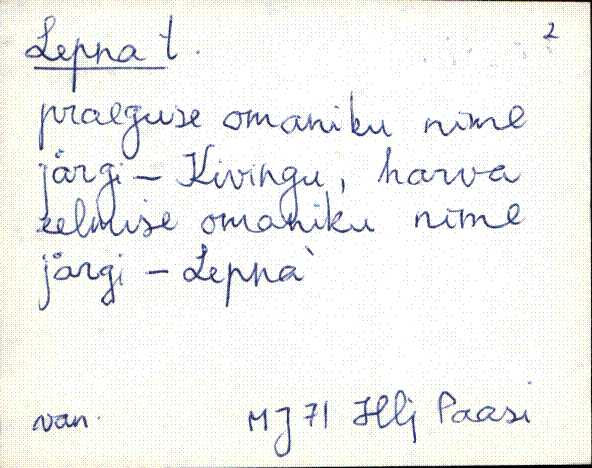 2
Lepna t.
praeguse omaniku nime
järgi – Kivingu, harva
eelmise omaniku nime
järgi – Lepna`
van. MJ 71 Hlj Paasi